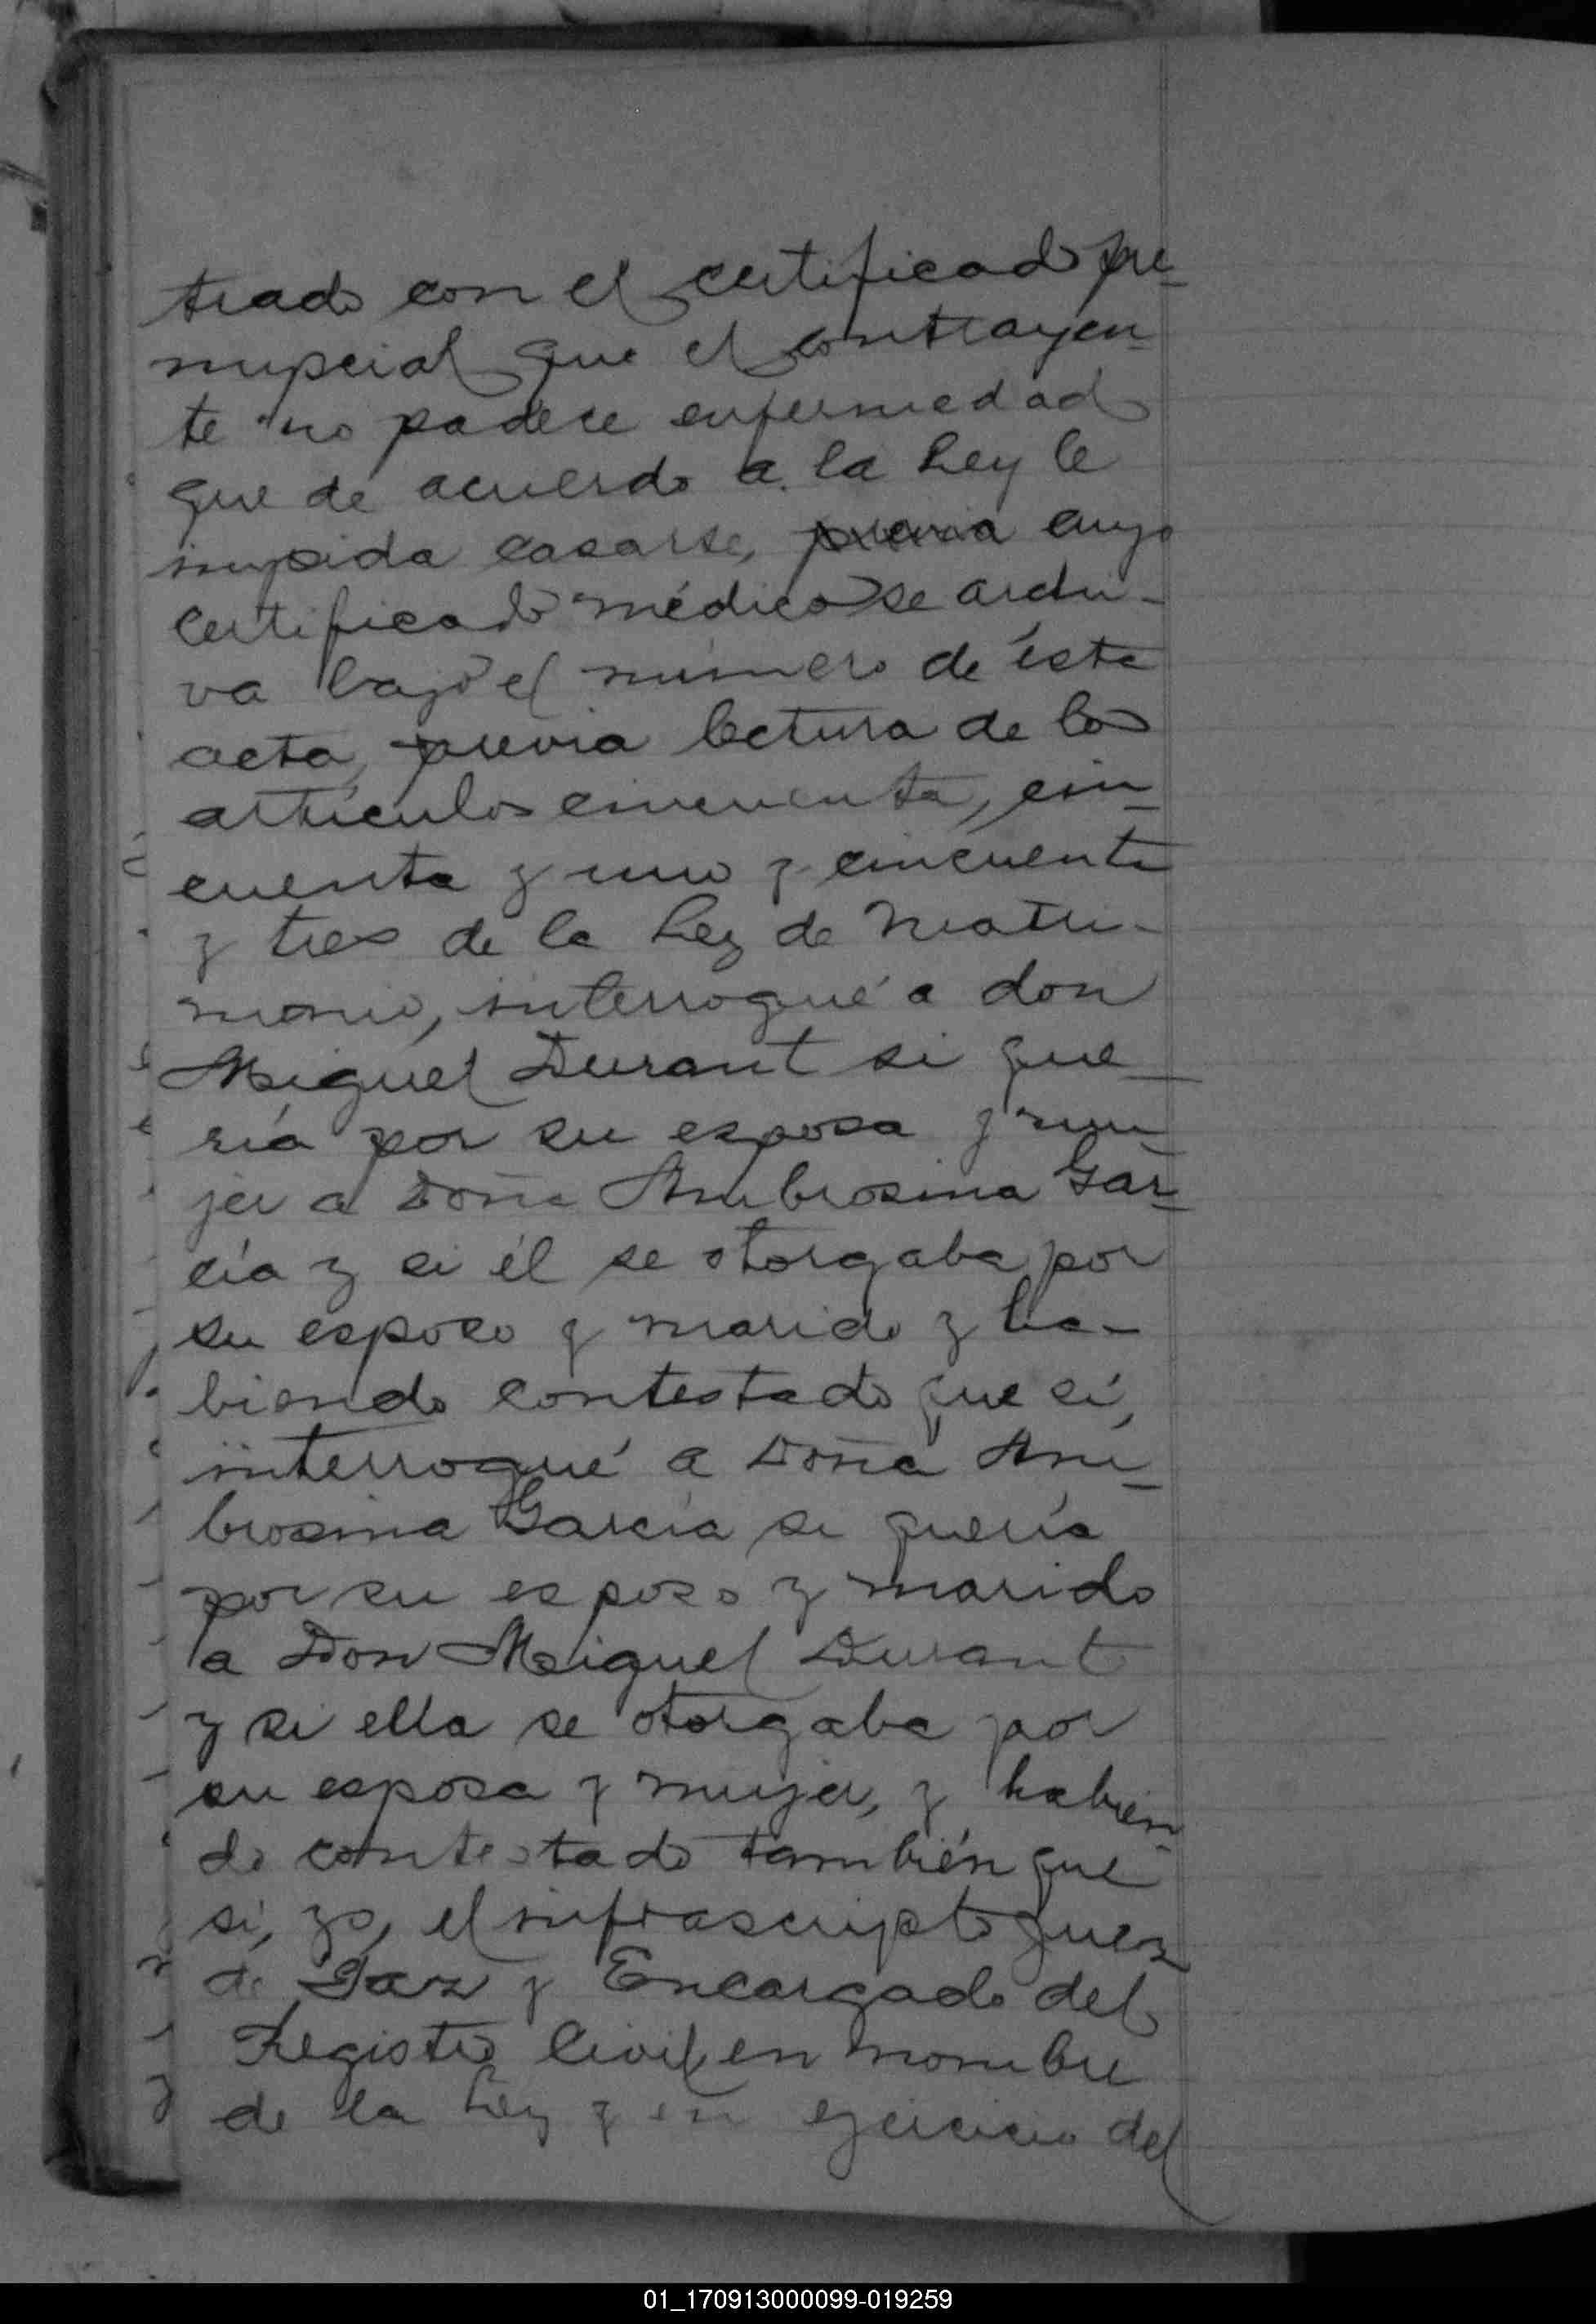 trado con el certificado pre-
nupcial que el contrayen-
te no padece enfermedad
que de acuerdo a la Ley le
impida casarse, previa cuyo
certificado médico se archi-
va bajo el número de éste
acta, previa lectura de los
artículos cincuenta, cin-
cuenta y uno y cincuenta
y tres de la Ley de Matri-
monio, interrogué a don
Miguel Durant si que-
ría por su esposa y mu-
jer a Doña Ambrosina Gar-
cía y si él se otorgaba por
su esposo y marido y ha-
biendo contestado que sí,
interrogué a Doña Am-
brosina García si quería
por su esposo y marido
a Don Miguel Durant
y si ella se otorgaba por
su esposa y mujer, y habien-
do contestado también que
sí, yo, el infrascripto Juez
de Paz y Encargado del
Registro Civil, en nombre
de la Ley y en ejercicio del
01_170913000099-019259